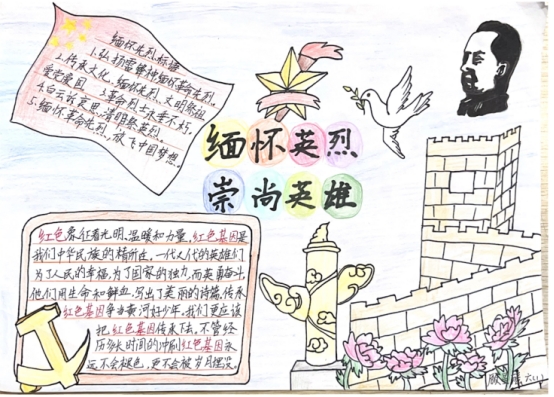 缅怀先烈标语
1.弘扬雷锋精神缅怀革命先烈。
2.传承文化,缅怀先烈,文明祭祖
爱党爱国。 3.革命烈士永垂不朽。
4.白云寄哀思,清明祭英烈
5.缅怀革命先烈,放飞中国梦想。
缅怀英烈
崇尚英雄
红色象征着光明,温暖和力量,红色基因是
我们中华民族的精神所在。一代人代的英雄们
为了人民的幸福,为了国家的独力,而英勇奋斗,
他们用生命和鲜血,写出了美丽的诗篇,传承
红色基因争当黄河好少年。我们更应该
把红色基因传承下去。不管经
历多长时间的冲刷红色基因永
远不会褪色,更不会被岁月埋没。